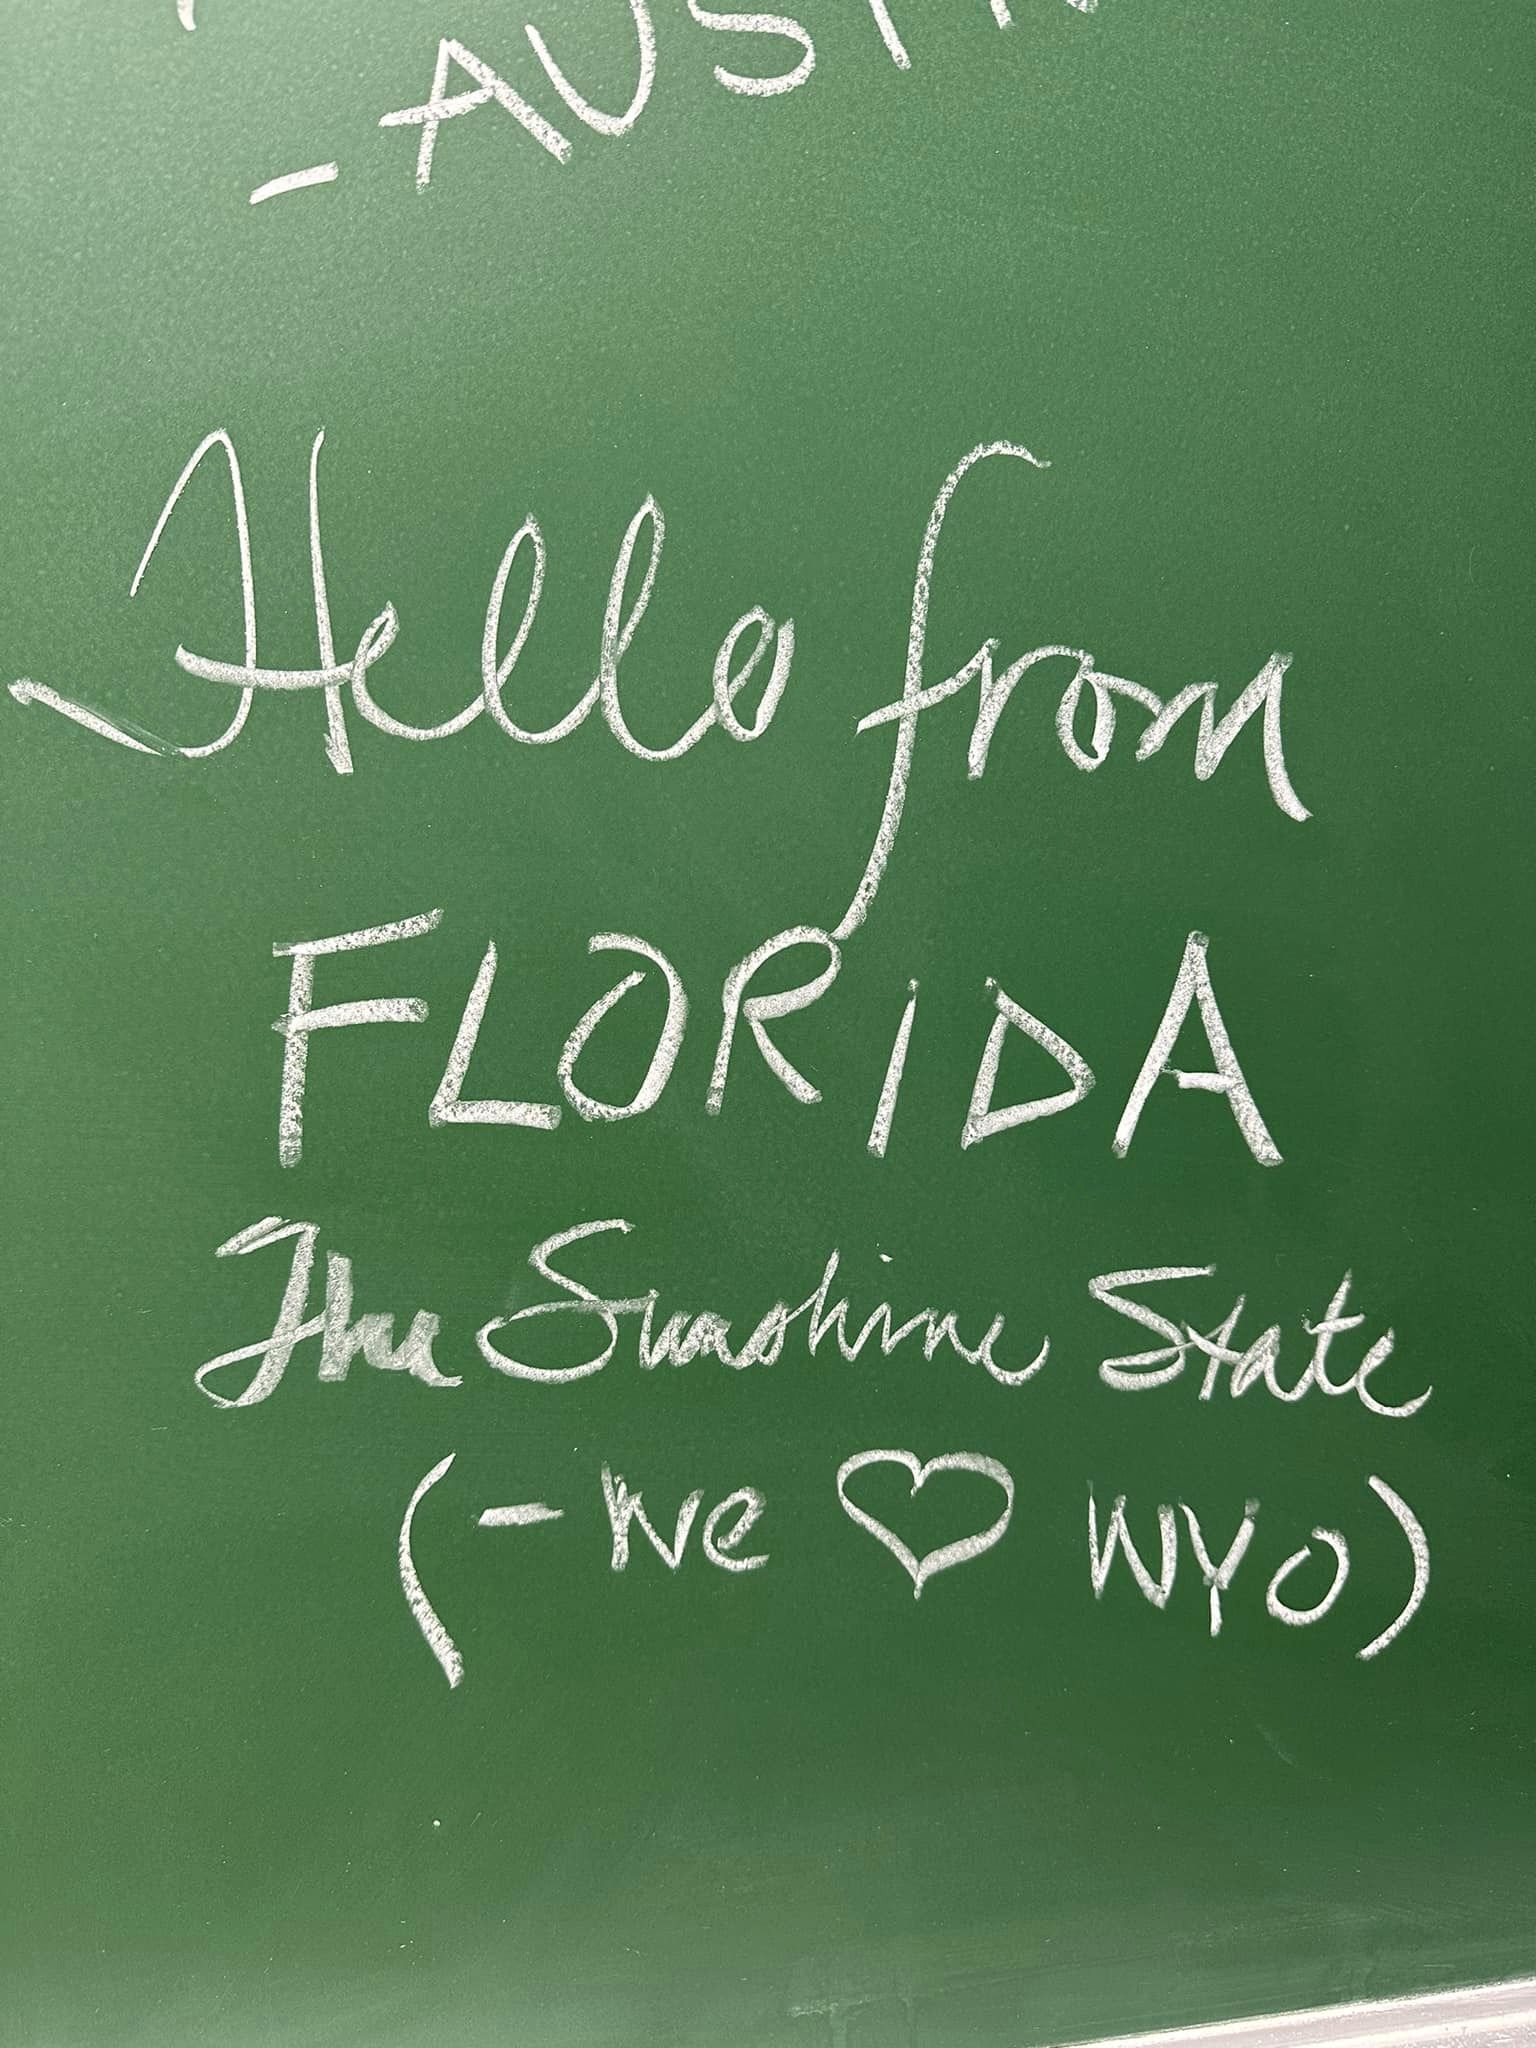 - AUSTIN
Hello from
FLORIDA
The Sunshine State
(- We ♡ WYO)